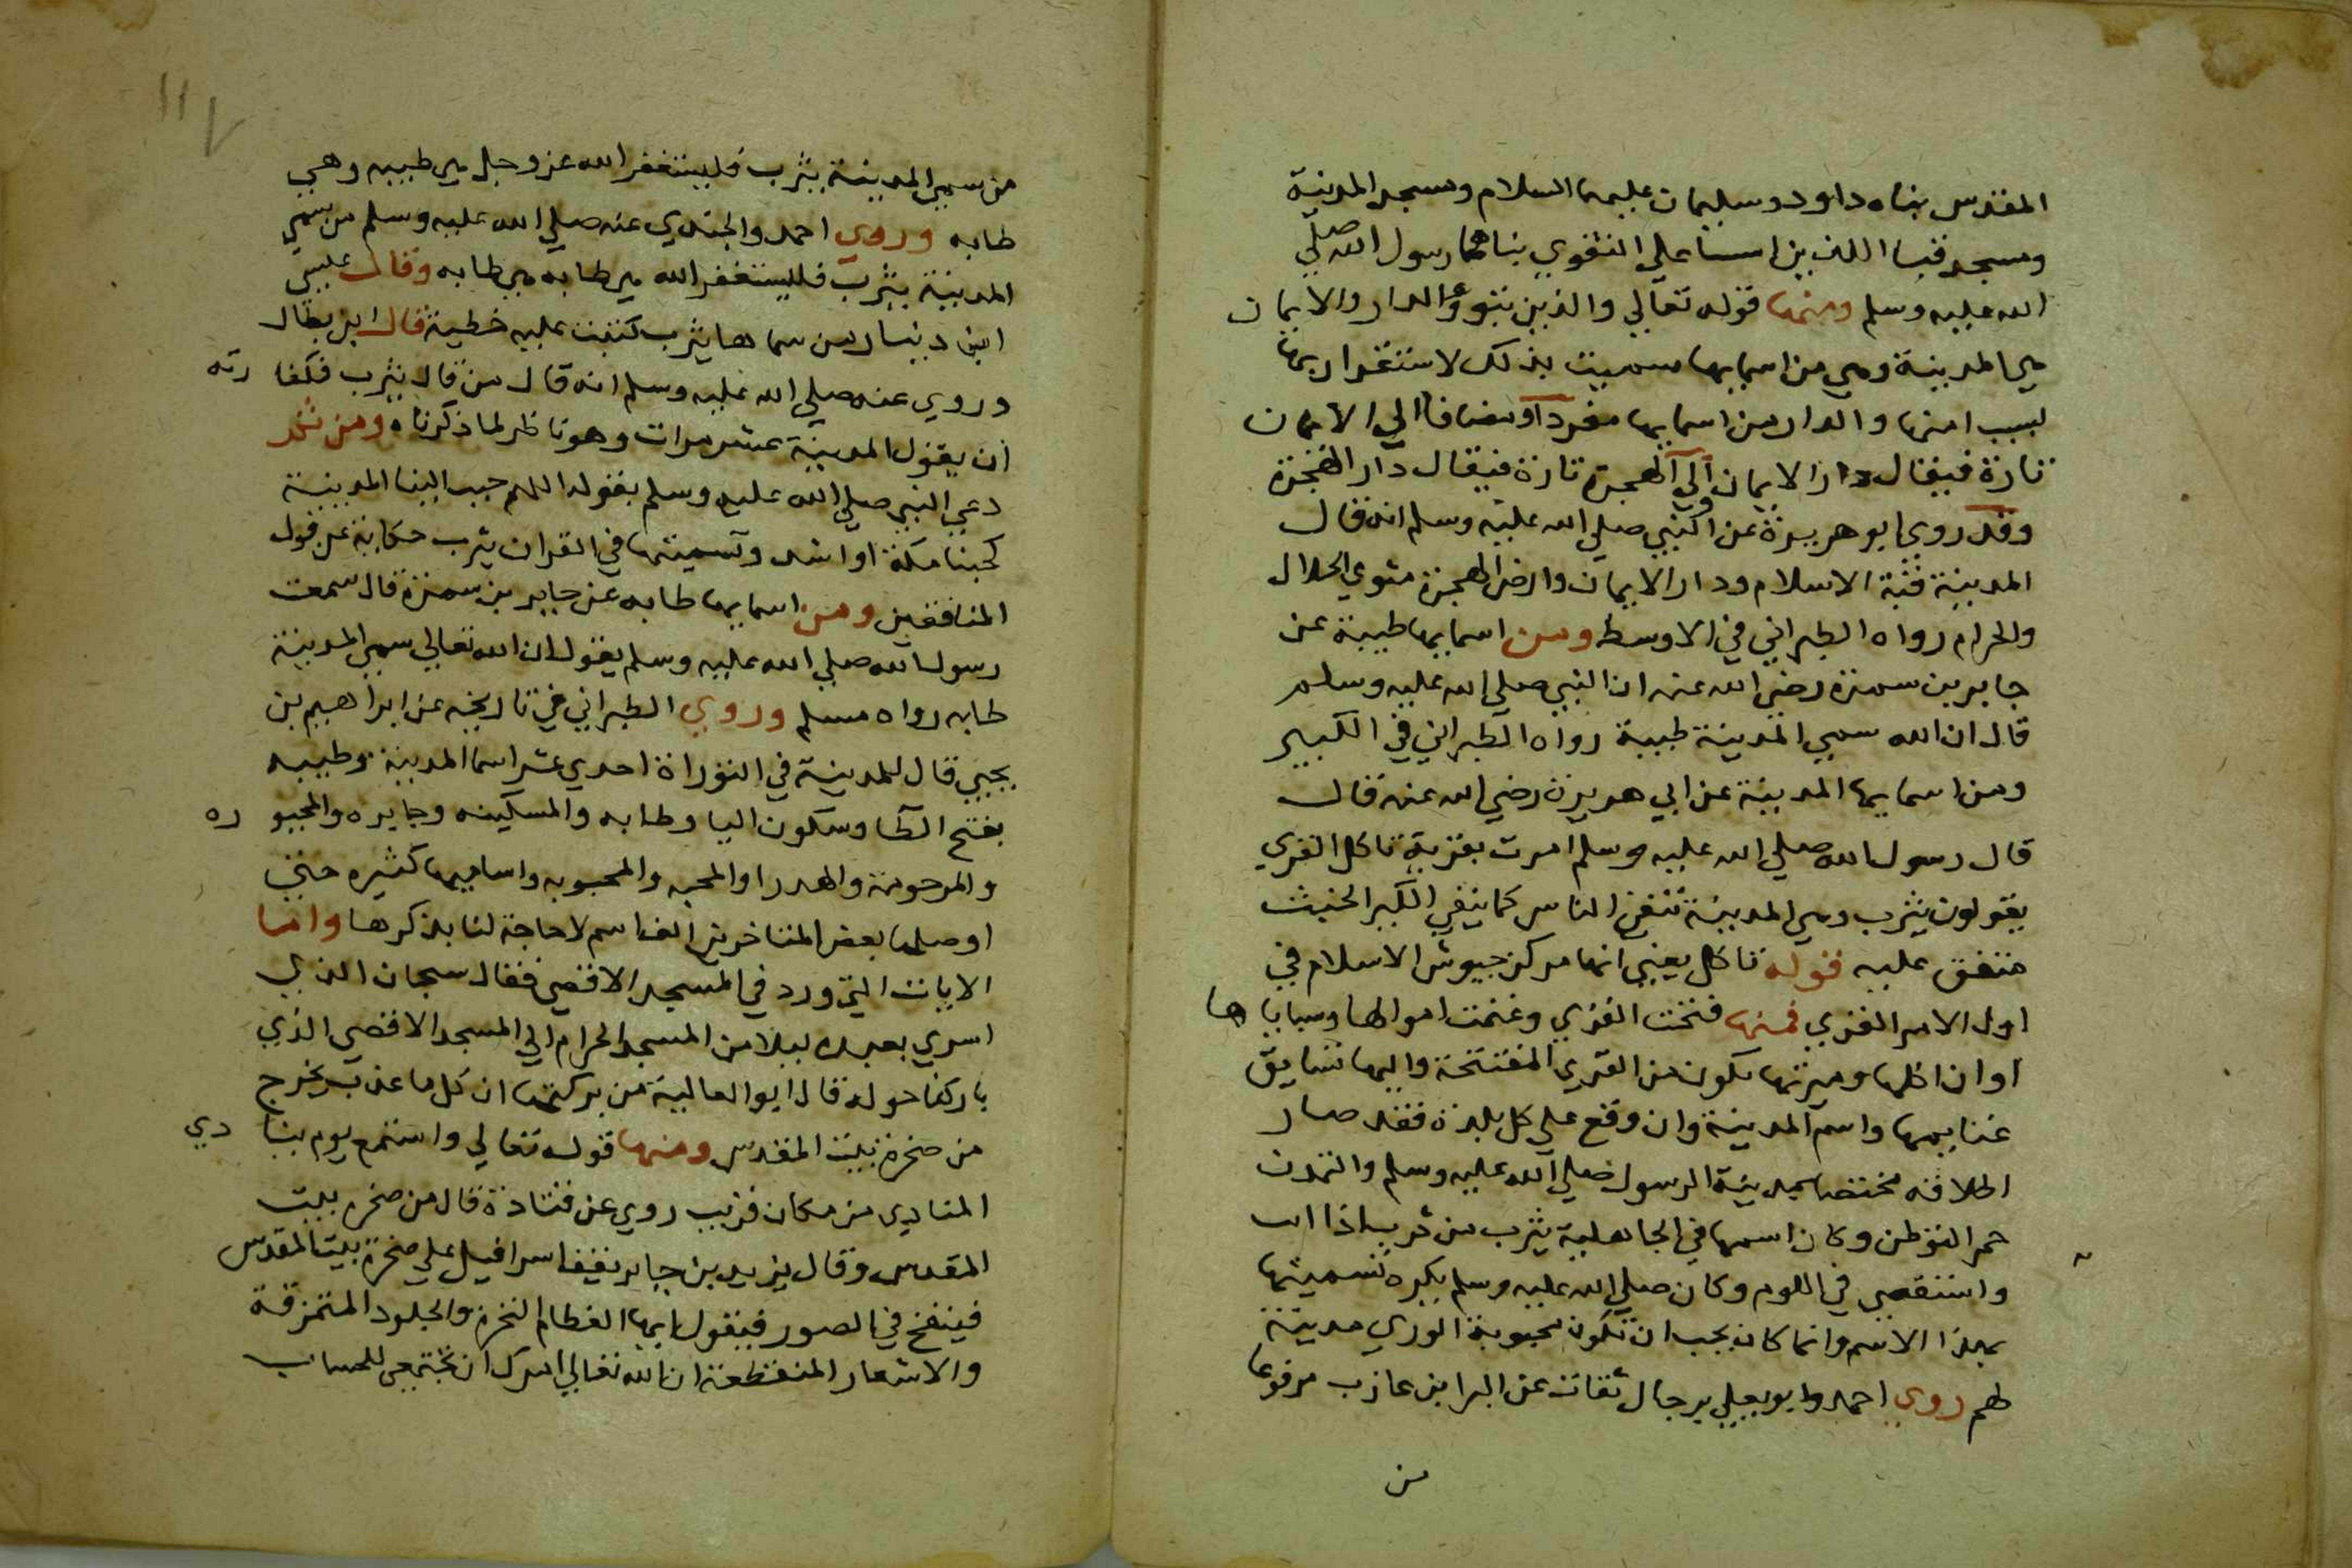 المقدس بناه داود وسليمان عليهما السلام ومسجد المدينة
ومسجد قبا اللذين اسسا علي التقوي بناهما رسول الله صلي
الله عليه وسلم ومنها قوله تعالي والذين تبووا الدار والايمان
هي المدينة وهي من اسمايها سميت بذلك لاستقرار بها
لسبب امنها والدار من اسمايها مفردا ومضافا الي الايمان
تارة فيقال دار الايمان والي الهجرة تارة فيقال دار الهجرة
وقد روي ابو هريرة عن النبي صلي الله عليه وسلم انه قال
المدينة قبة الاسلام ودار الايمان وارض الهجرة مثوي الحلال
والحرام رواه الطبراني في الاوسط ومن اسمايها طيبة عن
جابر بن سمرة رضي الله عنه ان النبي صلي الله عليه وسلم
قال ان الله سمي المدينة طيبة رواه الطبراني في الكبير
ومن اسمايها المدينة عن ابي هريرة رضي الله عنه قال
قال رسول الله صلي الله عليه وسلم امرت بقرية تاكل القري
يقولون يثرب وهي المدينة تنفي الناس كما ينفي الكير الخبث
متفق عليه قوله تاكل يعني انها مركز جيوش الاسلام في
اول الامر القري فمنها فتحت القري وغنمت اموالها وسباياها
او ان اكلها وميرتها تكون من القري المفتتحة واليها تساق
غنايمها واسم المدينة وان وقع علي كل بلدة فقد صار
اطلاقه مختصا بمدينة الرسول صلي الله عليه وسلم والتمدن
هو التوطن وكان اسمها في الجاهلية يثرب من ثرب اذا
واستقصي في اللوم وكان صلي الله عليه وسلم يكره تسميتها
بهذا الاسم وانما كان يحب ان تكون محبوبة الوري مدينة
لهم روي احمد وابو يعلي برجال ثقات عن البرا بن عازب مرفوعا
من
١١٧
من سمي المدينة يثرب فليستغفر الله عز وجل هي طيبه وهي
طابه وروي احمد والجندي عنه صلي الله عليه وسلم من سمي
المدينة يثرب فليستغفر الله هي طابه هي طابه وقال عيسي
ابن دينار من سماها يثرب كتبت عليه خطية قال ابن بطال
وروي عنه صلي الله عليه وسلم انه قال من قال يثرب فكفارته
ان يقول المدينة عشر مرات وهو ناظر لما ذكرناه ومن ثم
دعي النبي صلي الله عليه وسلم بقوله اللهم حبب الينا المدينة
كحبنا مكة او اشد وتسميتها في القران يثرب حكاية عن قول
المنافقين ومن اسمايها طابه عن جابر بن سمرة قال سمعت
رسول الله صلي الله عليه وسلم يقول ان الله تعالي سمي المدينة
طابه رواه مسلم وروي الطبراني في تاريخه عن ابراهيم بن
يحيي قال للمدينة في التوراة احدي عشر اسما المدينة وطيبه
بفتح الطا وسكون اليا وطابه والمسكينه وجابره والمجبوره
والمرحومة والهدرا والمحبه والمحبوبه واساميها كثيره حتي
اوصلها بعض المتاخرين الف اسم لا حاجة لنا بذكرها واما
الايات التي ورد في المسجد الاقصي فقال سبحان الذي
اسري بعبده ليلا من المسجد الحرام الي المسجد الاقصي الذي
باركنا حوله قال ابو العالية من بركتها ان كل ما عذب يخرج
من صخرة بيت المقدس ومنها قوله تعالي واستمع يوم ينادي
المنادي من مكان قريب روي عن قتادة قال من صخره بيت
المقدس وقال يزيد بن جابر يقف اسرافيل علي صخرة بيت المقدس
فينفخ في الصور فيقول ايها العظام النخرة والجلود المتمزقة
والاشعار المنقطعة ان الله تعالي امرك ان تجتمعي للحساب